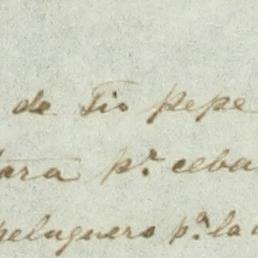 de Tio Pepe
tara pr. ceba
peluquero pa. la